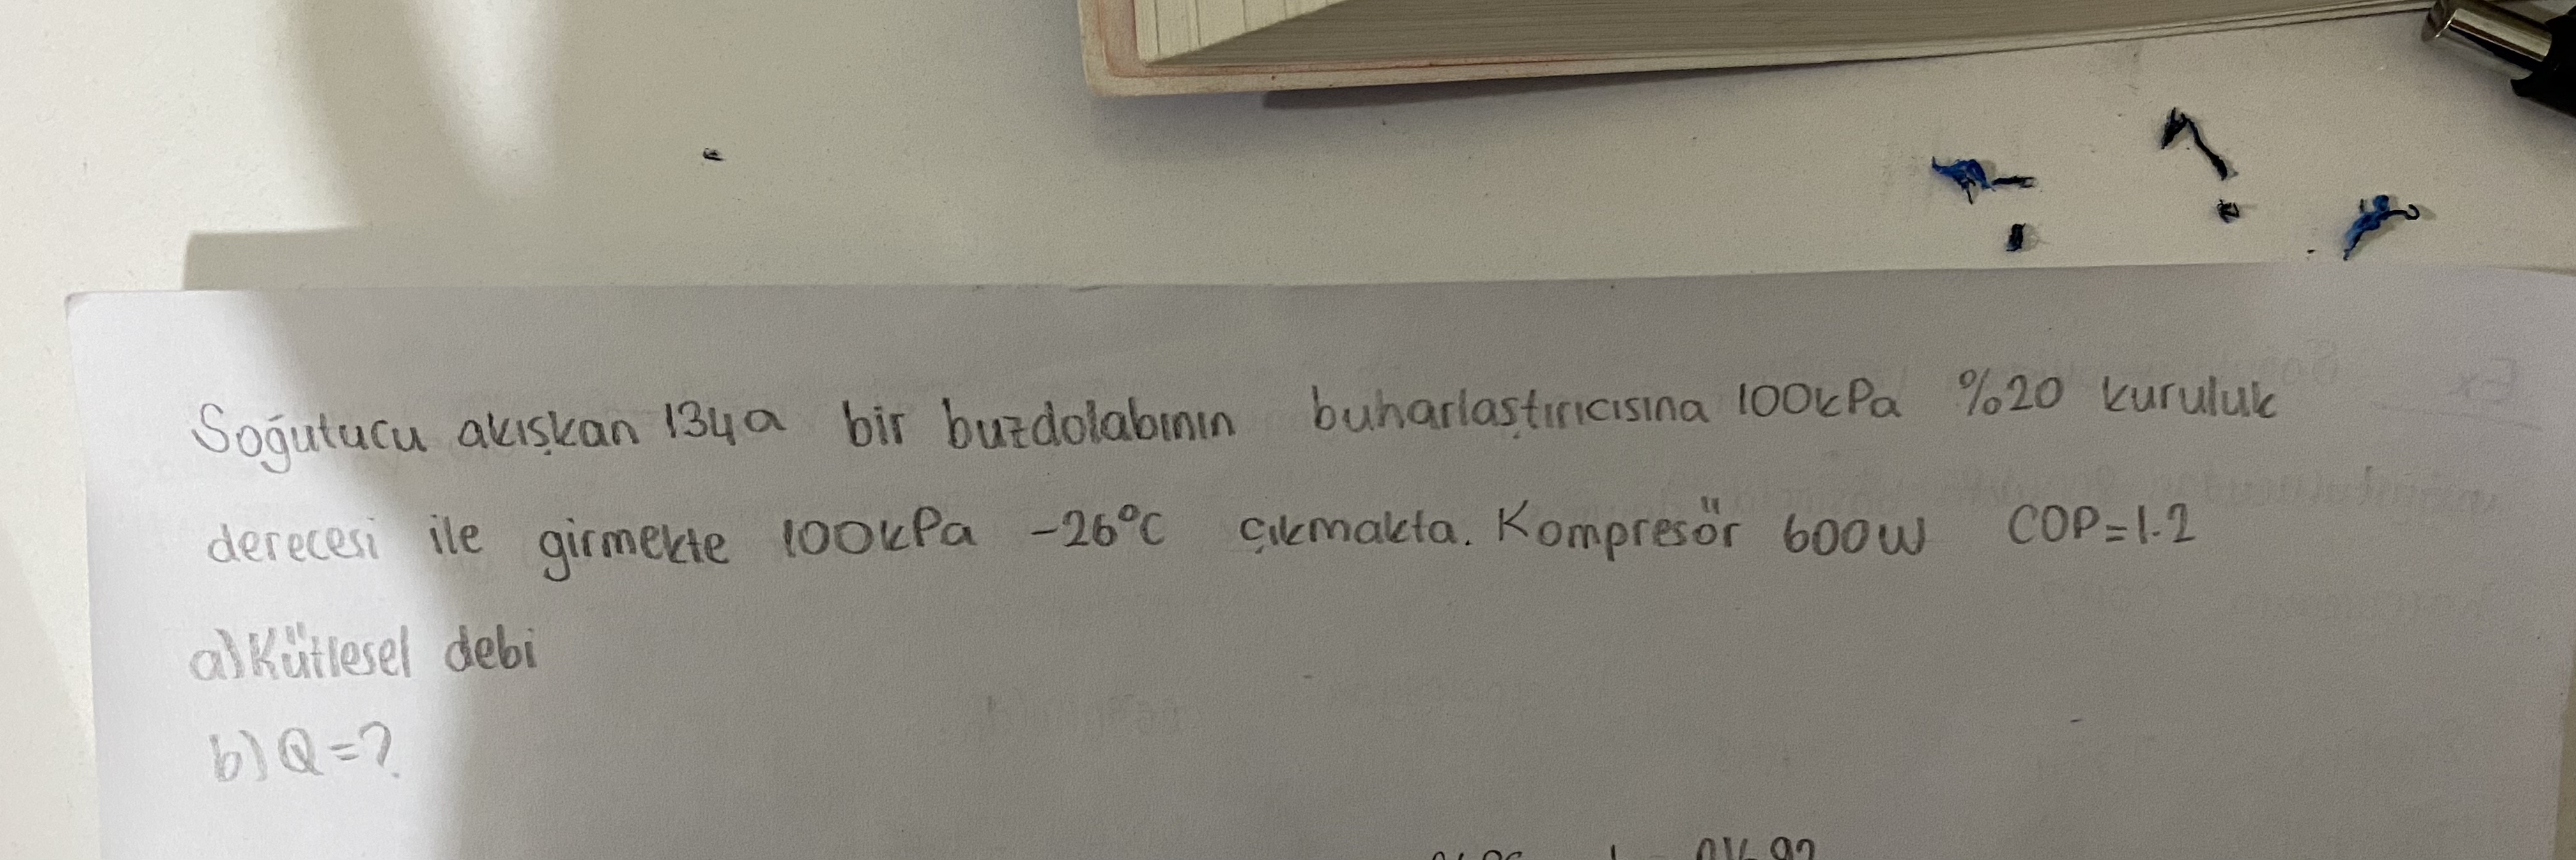 Soğutucu akışkan 134a bir buzdolabının buharlaştırıcısına 100kPa %20 kuruluk
derecesi ile girmekte 100kPa -26°C çıkmakta. Kompresör 600W COP=1.2
a)Kütlesel debi
b)Q=?